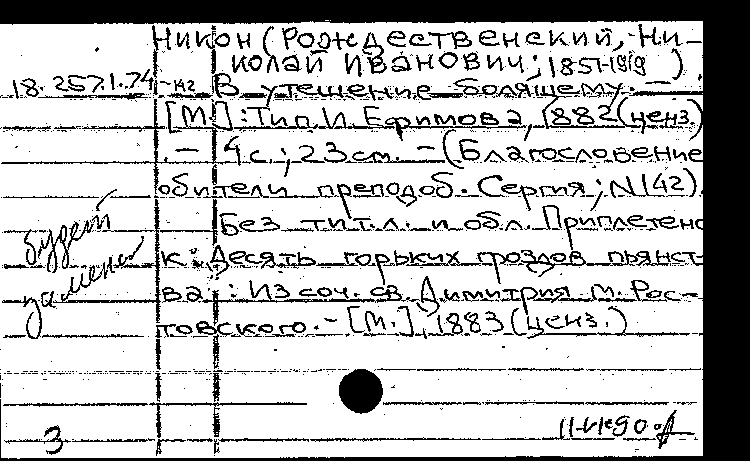 Никон (Рождественский, Ни-
колай Иванович; 1851-1919)
18.257.1.74 -кг В утешение болящему. -
[М.]: Тип. И. Ефимова, 1882 (ценз.)
. - 4 с.; 23 см. - (Благословение
обители преподоб. Сергия; N (42).
Без тит.л. и обл. Приплетено
к: Десять горьких гроздов пьянст-
ва: Из соч. св. Димитрия м. Рос-
товского. - [М.], 1883 (ценз.)
будет
замена
3